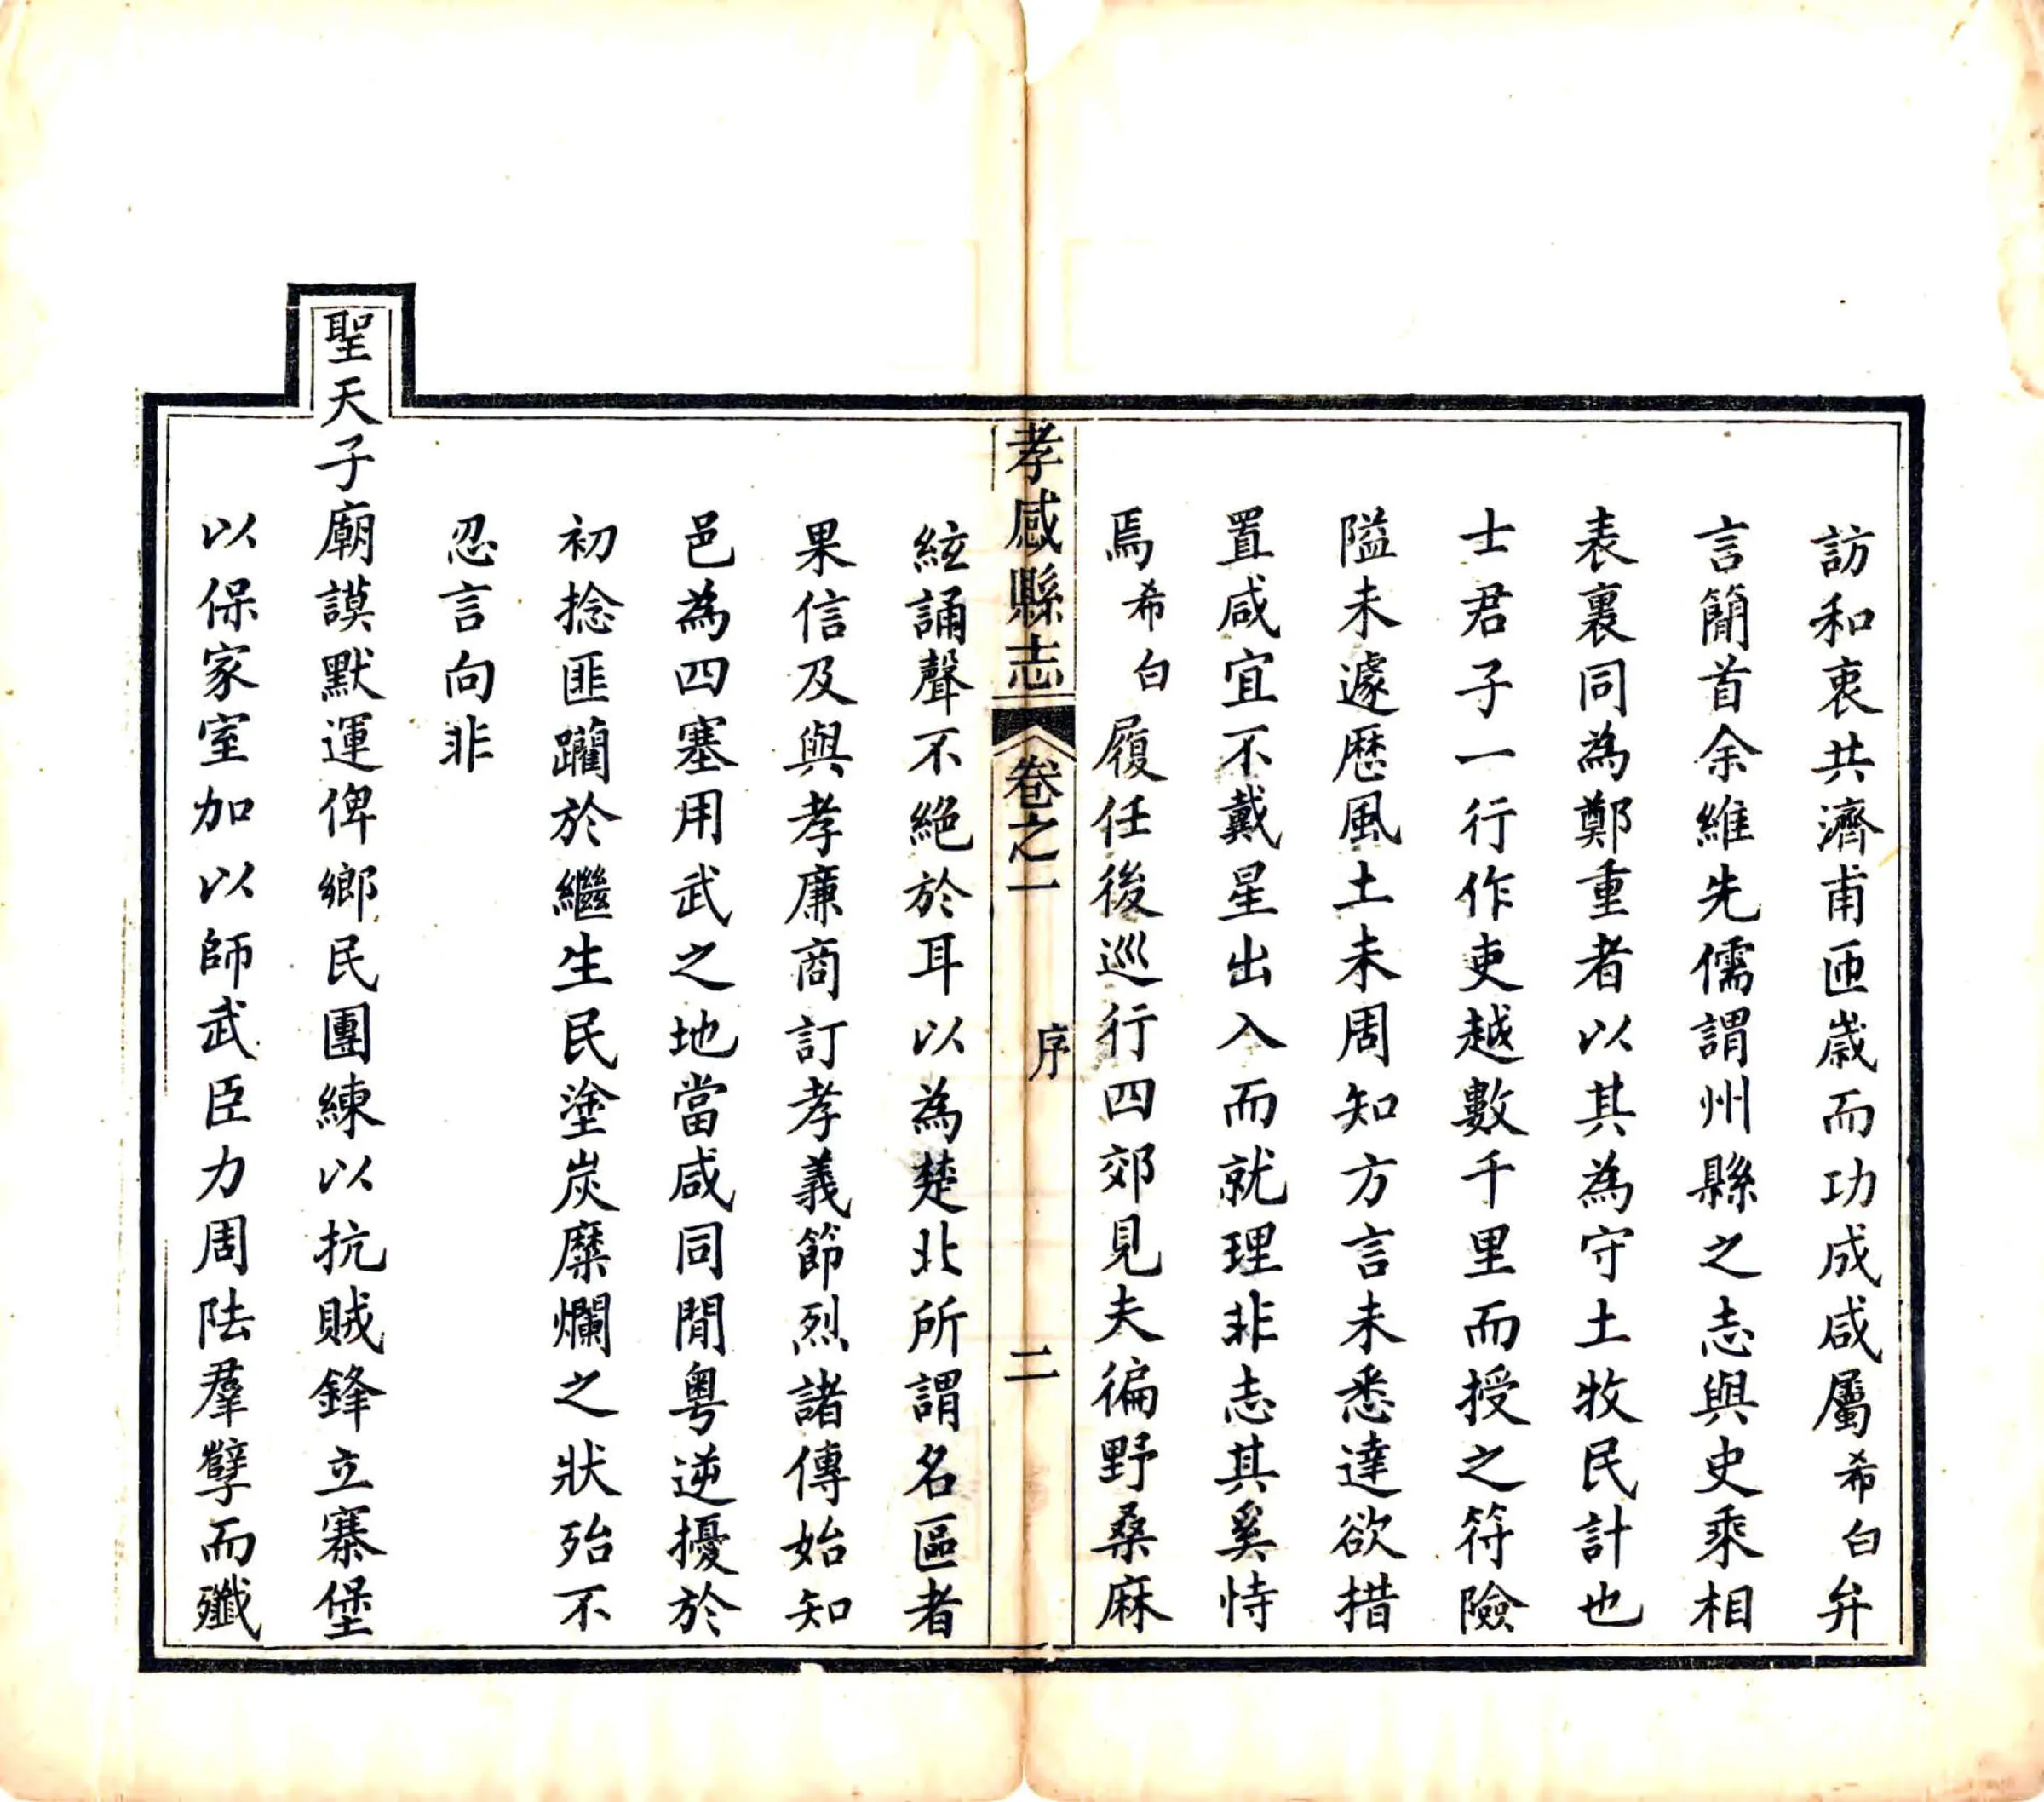 訪和衷共濟甫匝歲而功成咸屬希白弁
言簡首余維先儒謂州縣之志與史乘相
表裏同為鄭重者以其為守土牧民計也
士君子一行作吏越數千里而授之符險
隘未遽歷風土未周知方言未悉達欲措
置咸宜不戴星出入而就理非志其奚恃
焉希白履任後巡行四郊見夫徧野桑麻
孝感縣志 卷之一 序 二
絃誦聲不絕於耳以為楚北所謂名區者
果信及與孝廉商訂孝義節烈諸傳始知
邑為四塞用武之地當咸同閒粵逆擾於
初捻匪躪於繼生民塗炭糜爛之狀殆不
忍言向非
聖天子廟謨默運俾鄉民團練以抗賊鋒立寨堡
以保家室加以師武臣力周阹羣孽而殲